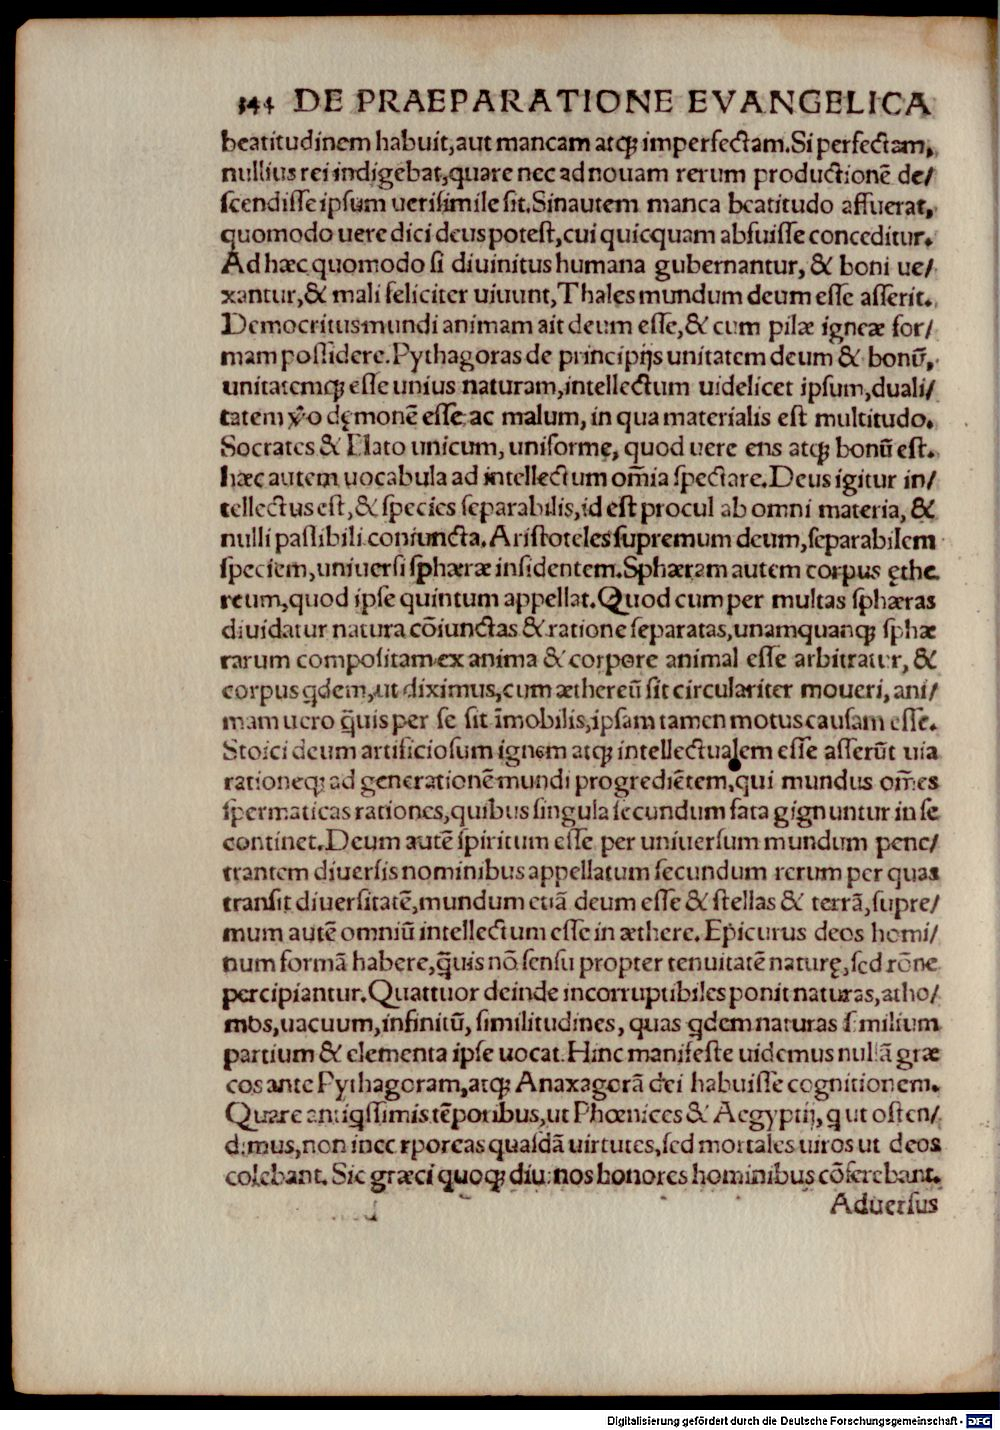 344 DE PRAEPARATIONE EVANGELICA
beatitudinem habuit,aut mancam atqꝫ imperfectam.Si perfectam,
nullius rei indigebat,quare nec ad nouam rerum productionē de/
ſcendiſſe ipſum ueriſimile ſit.Sinautem manca beatitudo affuerat,
quomodo uere dici deus poteſt,cui quicquam abfuiſſe conceditur.
Ad hæc quomodo ſi diuinitus humana gubernantur, & boni ue/
xantur,& mali feliciter uiuunt,Thales mundum deum eſſe aſſerit.
Democritus mundi animam ait deum eſſe,& cum pilæ igneæ for/
mam poſſidere.Pythagoras de principijs unitatem deum & bonū,
unitatemqꝫ eſſe unius naturam,intellectum uidelicet ipſum,duali/
tatem v̊o dęmonē eſſe ac malum, in qua materialis eſt multitudo.
Socrates & Plato unicum, uniforme, quod uere ens atqꝫ bonū eſt.
hæc autem uocabula ad intellectum om̄ia ſpectare.Deus igitur in/
tellectus eſt,& ſpecies ſeparabilis,id eſt procul ab omni materia, &
nulli paſſibili coniuncta.Ariſtoteles ſupremum deum,ſeparabilem
ſpeciem,uniuerſi ſphæræ inſidentem.Sphæram autem corpus ęthe
reum,quod ipſe quintum appellat.Quod cum per multas ſphæras
diuidatur natura cōiunctas & ratione ſeparatas,unamquanqꝫ ſphæ
rarum compoſitam ex anima & corpore animal eſſe arbitratur, &
corpus qdem,ut diximus,cum æthereū ſit circulariter moueri, ani/
mam uero q̄uis per ſe ſit īmobilis,ipſam tamen motus cauſam eſſe.
Stoici deum artificioſum ignem atqꝫ intellectualem eſſe aſſerūt uia
rationeqꝫ ad generationē mundi progrediētem,qui mundus om̄es
ſpermaticas rationes,quibus ſingula ſecundum fata gignuntur in ſe
continet.Deum autē ſpiritum eſſe per uniuerſum mundum pene/
trantem diuerſis nominibus appellatum ſecundum rerum per quas
tranſit diuerſitatē,mundum etiā deum eſſe & ſtellas & terrā,ſupre/
mum autē omniū intellectum eſſe in æthere. Epicurus deos homi/
num formā habere,q̄uis nō ſenſu propter tenuitatē naturę,ſed rōne
percipiantur.Quattuor deinde incorruptibiles ponit naturas,atho/
mos,uacuum,infinitū, ſimilitudines, quas qdem naturas ſimilium
partium & elementa ipſe uocat.Hinc manifeſte uidemus nullā græ
cos ante Pythagoram,atqꝫ Anaxagorā dei habuiſſe cognitionem.
Quare antiqſſimis tēporibus,ut Phœnices & Aegyptij, q ut oſten/
dimus,non incorporeas quaſdā uirtutes,ſed mortales uiros ut deos
colebant. Sic græci quoqꝫ diuinos honores hominibus cōferebant.
Aduerſus
Digitalisierung gefördert durch die Deutsche Forschungsgemeinschaft - DFG